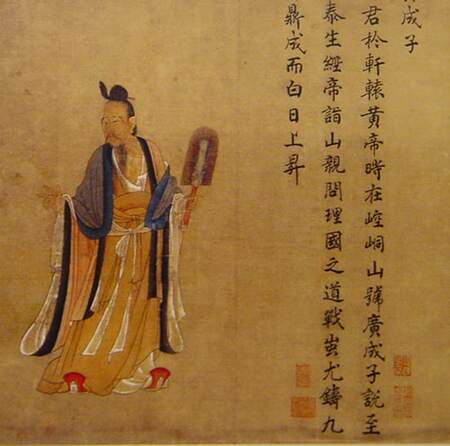 成子
君於軒轅黃帝時在崆峒山號廣成子說至
泰生經帝詣山親問理國之道戰蚩尤鑄九
鼎成而白日上昇